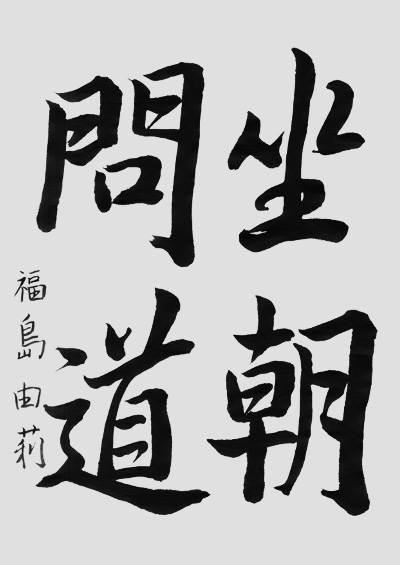 坐朝
問道
福島由莉